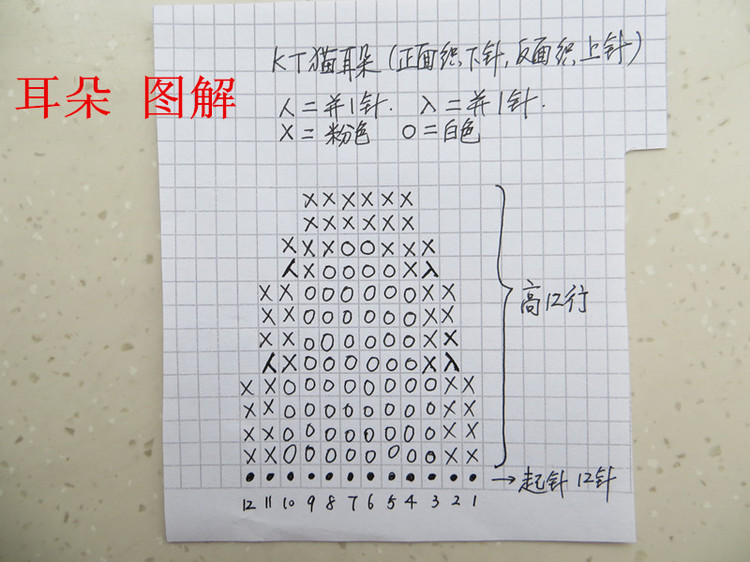 耳朵 图解
KT猫耳朵(正面织下针,反面织上针)
人=并1针. 入=并1针.
X=粉色 O=白色
X X X X X X
X X X X X X
X X X O O X X X
人 X O O O O X 入
X X O O O O O O X X
高12行
X X O O O O O O X X
X X O O O O O O X X
人 X O O O O O O X 入
X X O O O O O O O O X X
X X O O O O O O O O X X
X X O O O O O O O O X X
X X O O O O O O O O X X
• • • • • • • • • • • • →起针12针
12 11 10 9 8 7 6 5 4 3 2 1